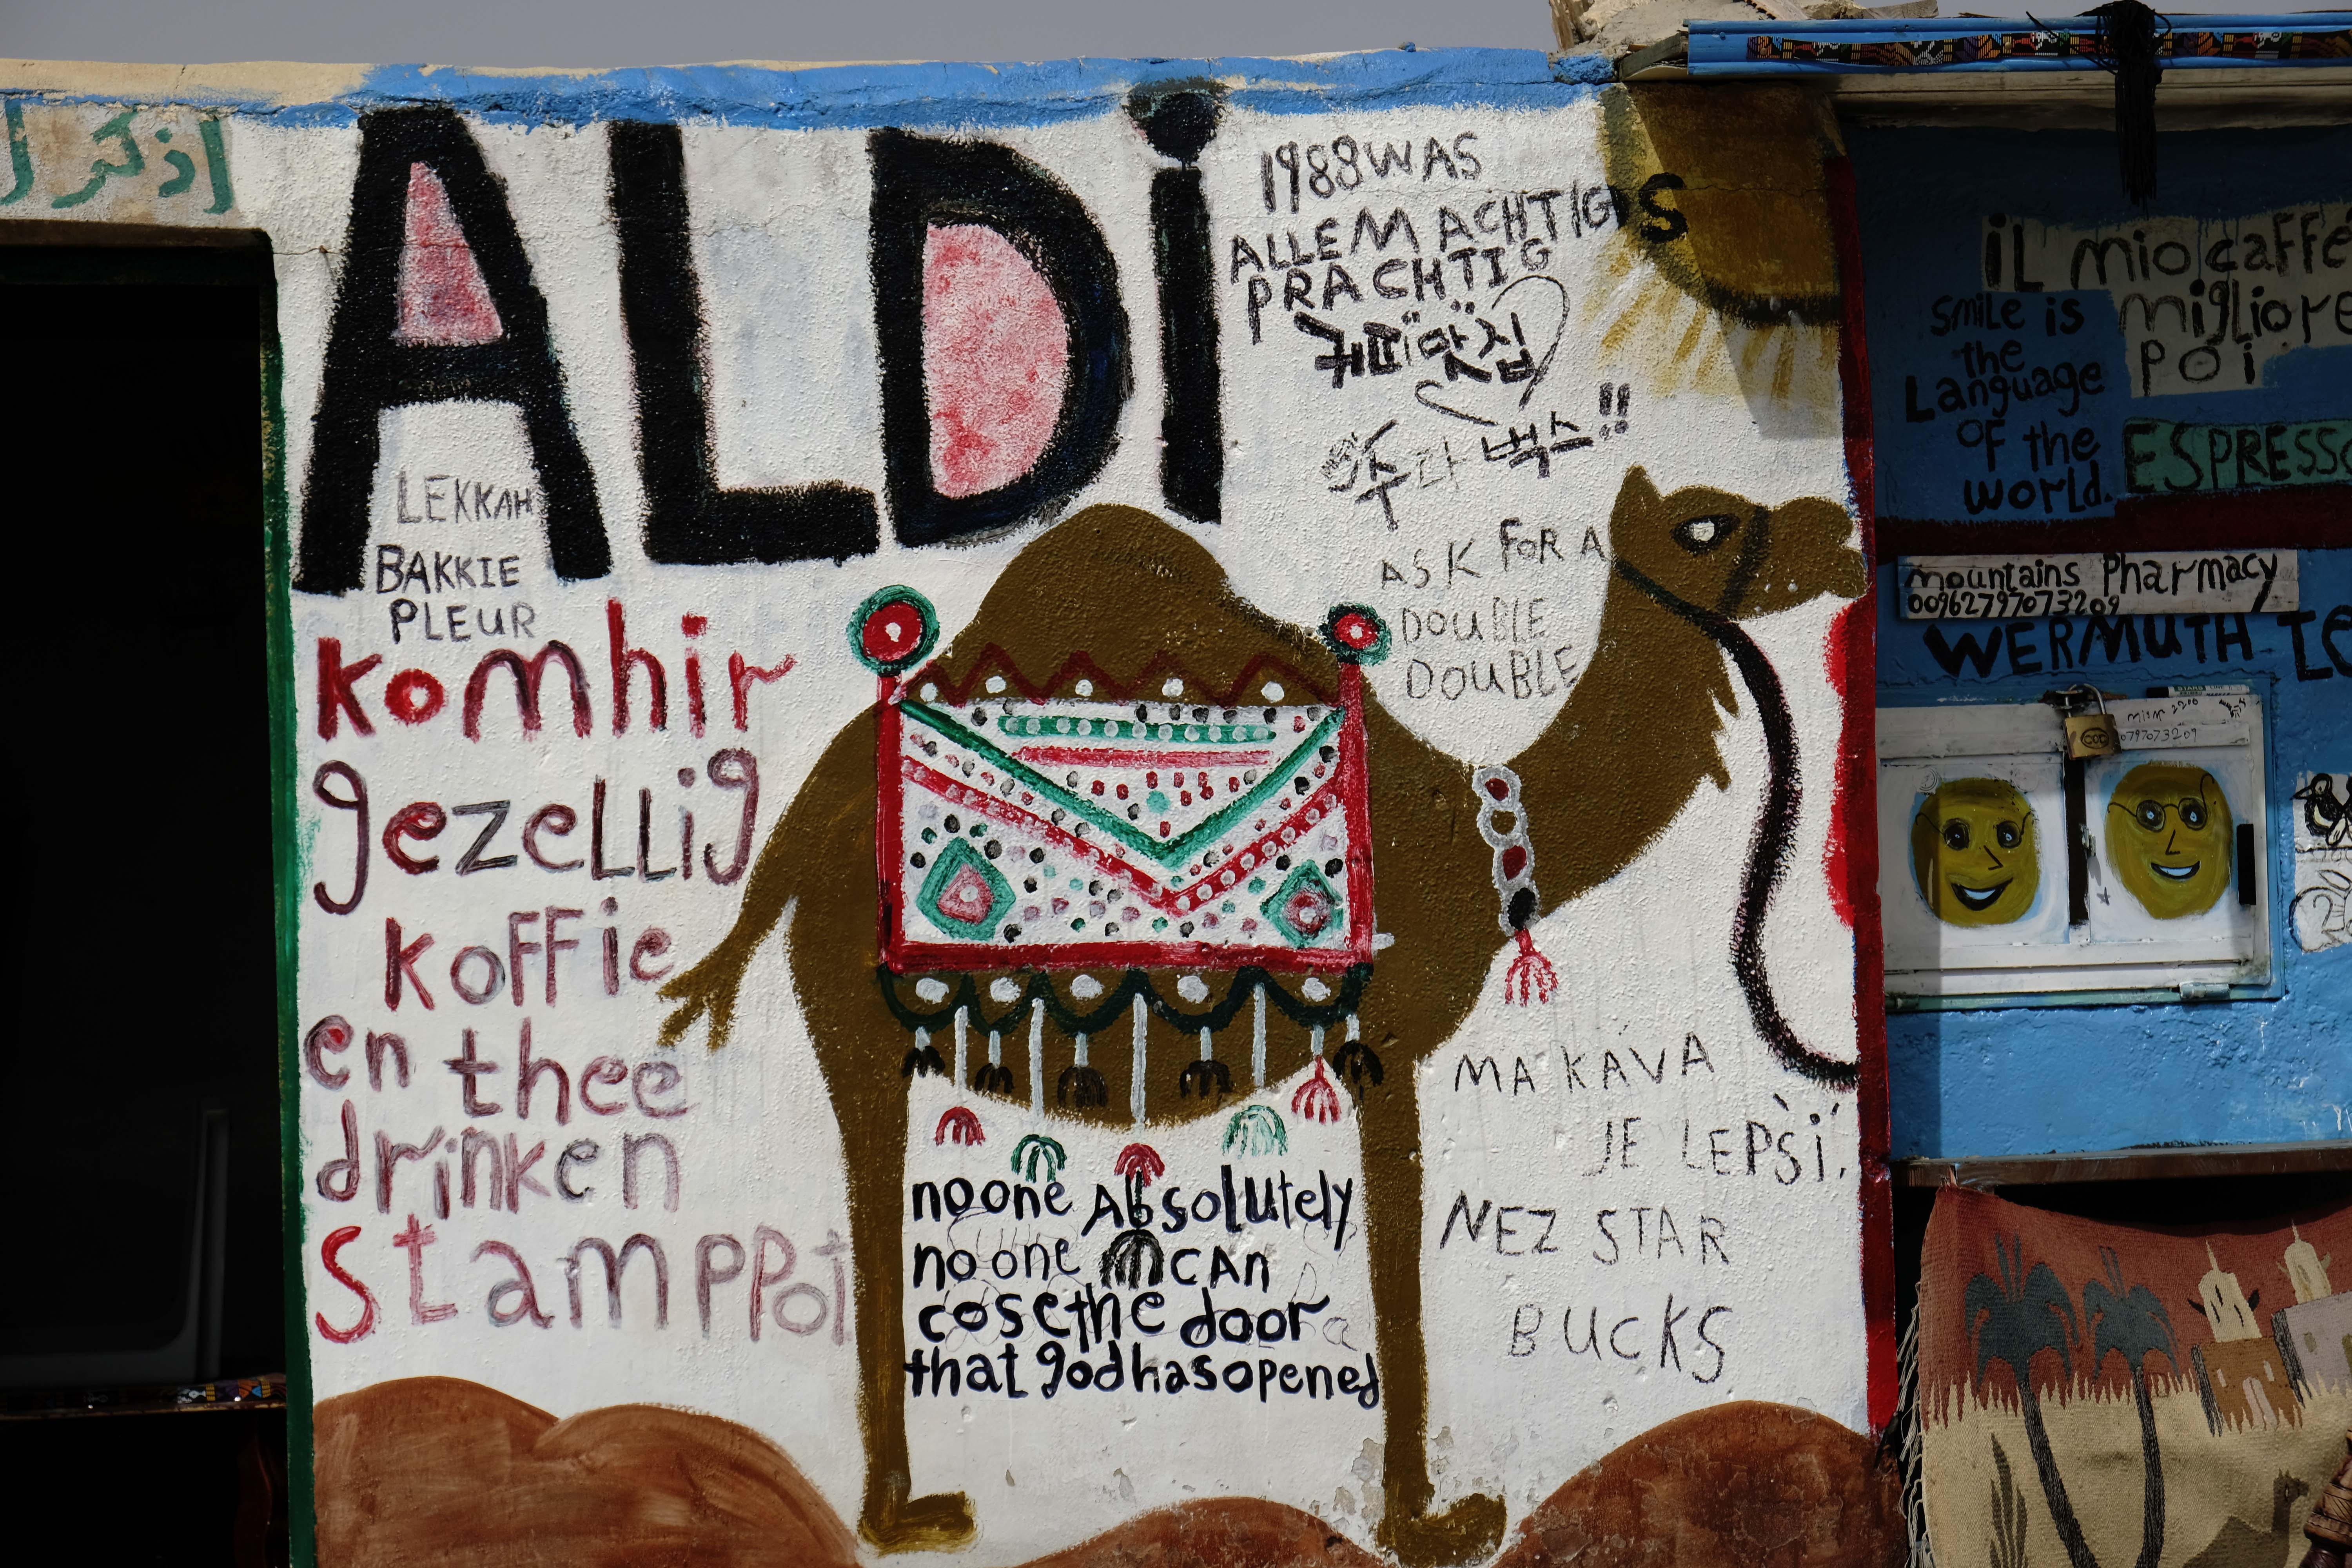 اذكر ا
ALDi
LEKKAH
BAKKIE
PLEUR
komhir
gezellig
koffie
en thee
drinken
Stamppot
1988 WAS
ALLEMACHTIGS
PRACHTIG
커피맛집
수라벅스!!
ASK FOR A
DOUBLE
DOUBLE
MA KÁVA
JE LEPŠÍ,
NEZ STAR
BUCKS
no one Absolutely
no one CAn
cose the door
that god has opened
iL mio caffé
migliore
poi
ESPRESSO
Smile is
the
Language
OF the
world.
mountains Pharmacy
00962797073209
WERMUTH TE
0797073209